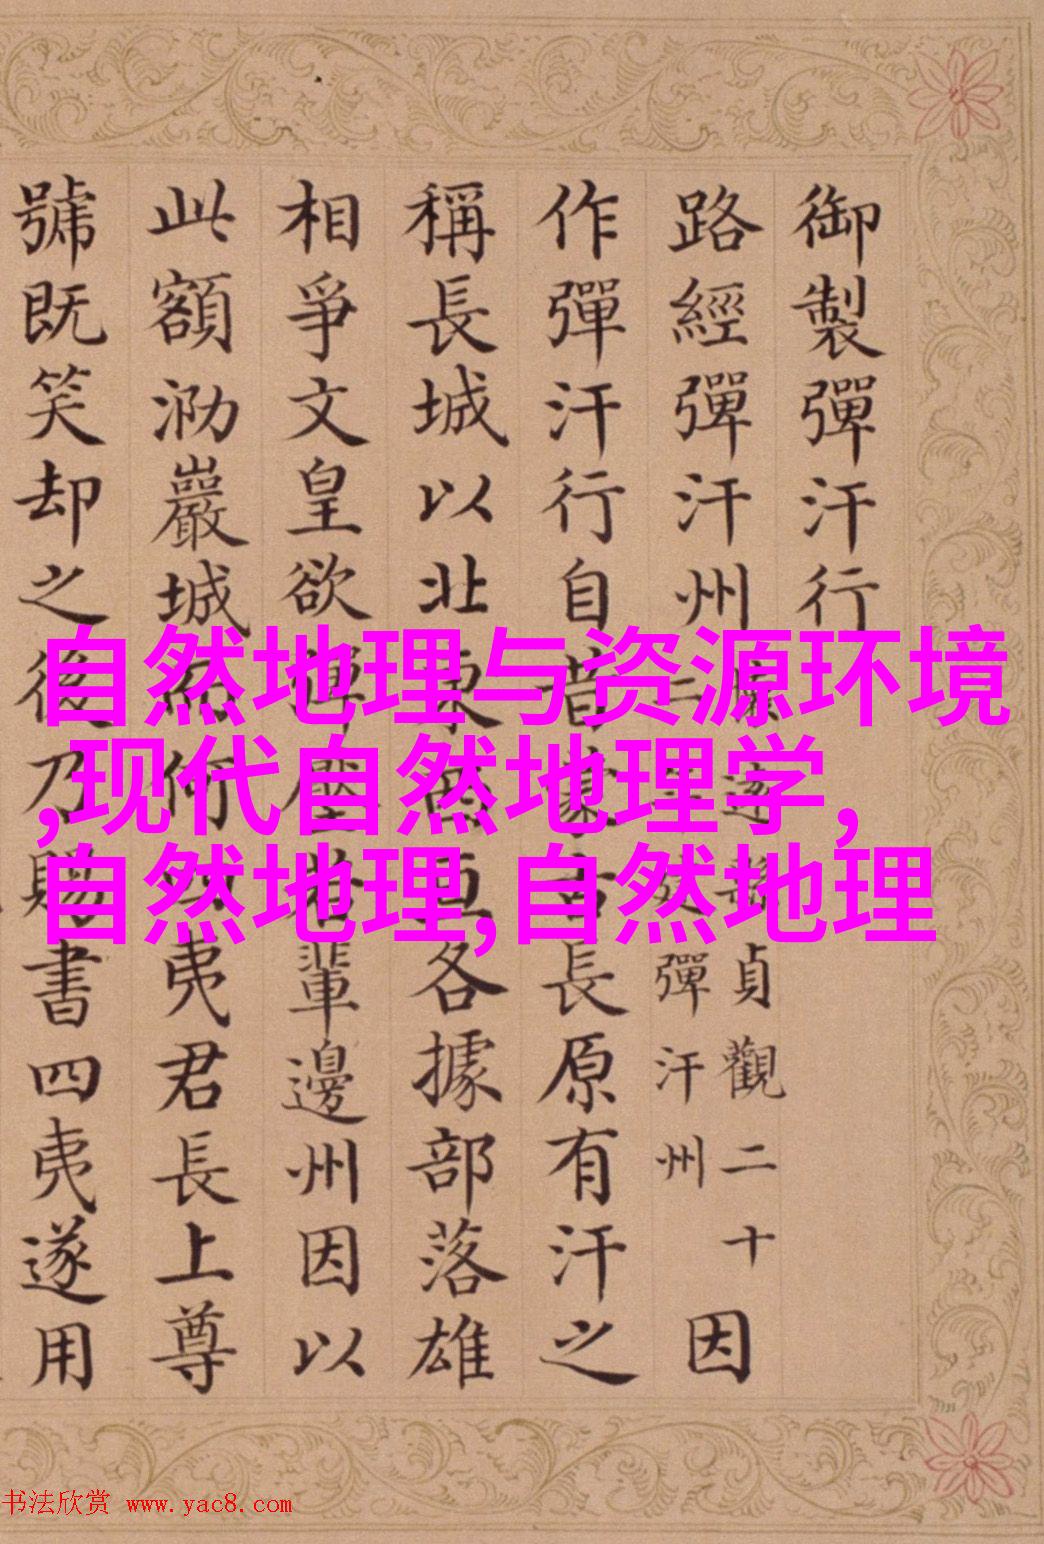 御製彈汗行
路經彈汗州
貞觀二十
彈汗州
因
作彈汗行自昔蒙古長原有汗之
稱長城以北東各據部落雄
相爭文皇欲彈壓若輩邊州因以
此額泐巖城何夷君長上尊
號既笑却之後乃賜書四夷遂用
自然地理与资源环境
,现代自然地理学,
自然地理,自然地理
书法欣赏 www.yac8.com